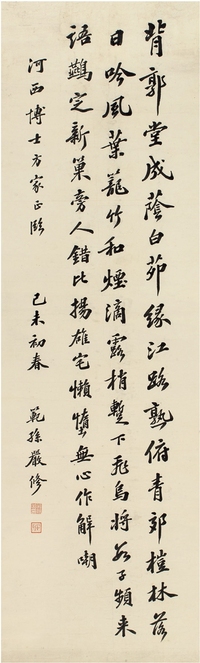 背郭堂成蔭白茆緣江路熟俯青郊榿林落
日吟風葉籠竹和煙滴露梢暫下飛烏將數子頻來
語鷰定新巢旁人錯比揚雄宅懶惰無心作解嘲
河西博士方家正
己未初春
範孫嚴修